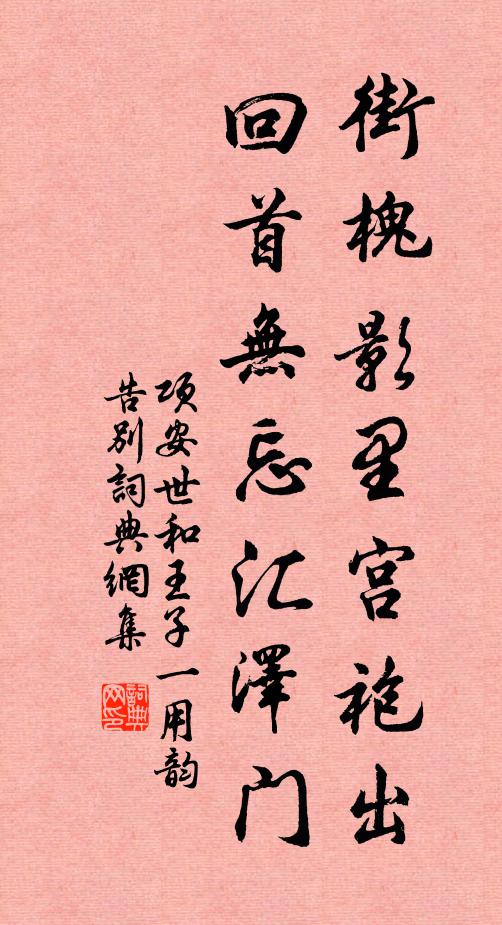 街槐影里宫袍出
回首無忘汇澤门
项安世和王子一用韵
告别詞典網集
詞典网印